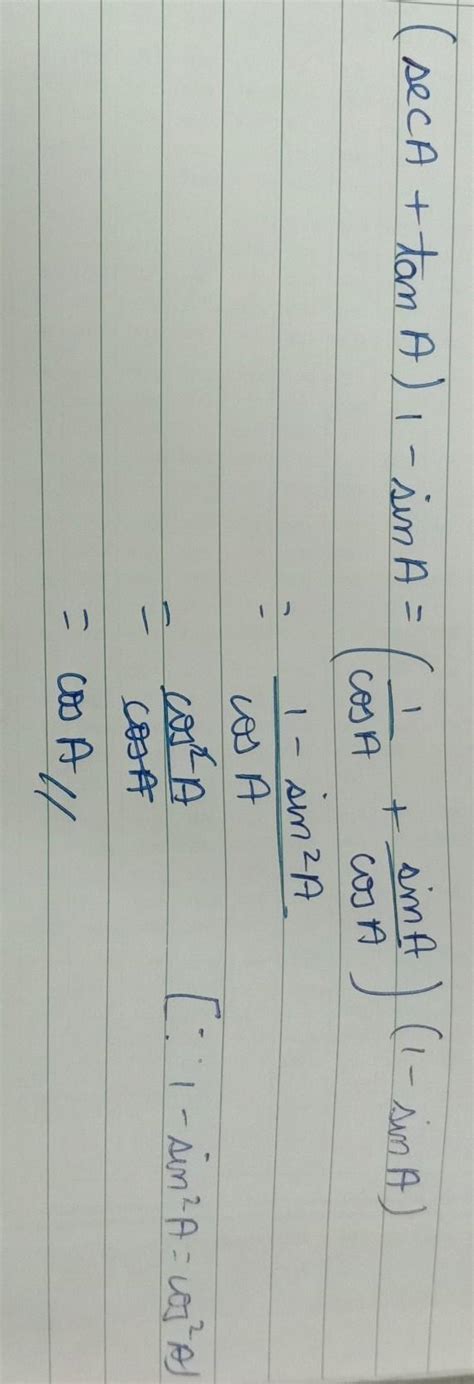 (sec A + tan A) 1 - sin A = (1/cos A + sin A/cos A) (1 - sin A)
= 1 - sin²A/cos A
= cos²A/cos A [∵ 1 - sin²A = cos²A]
= cos A //